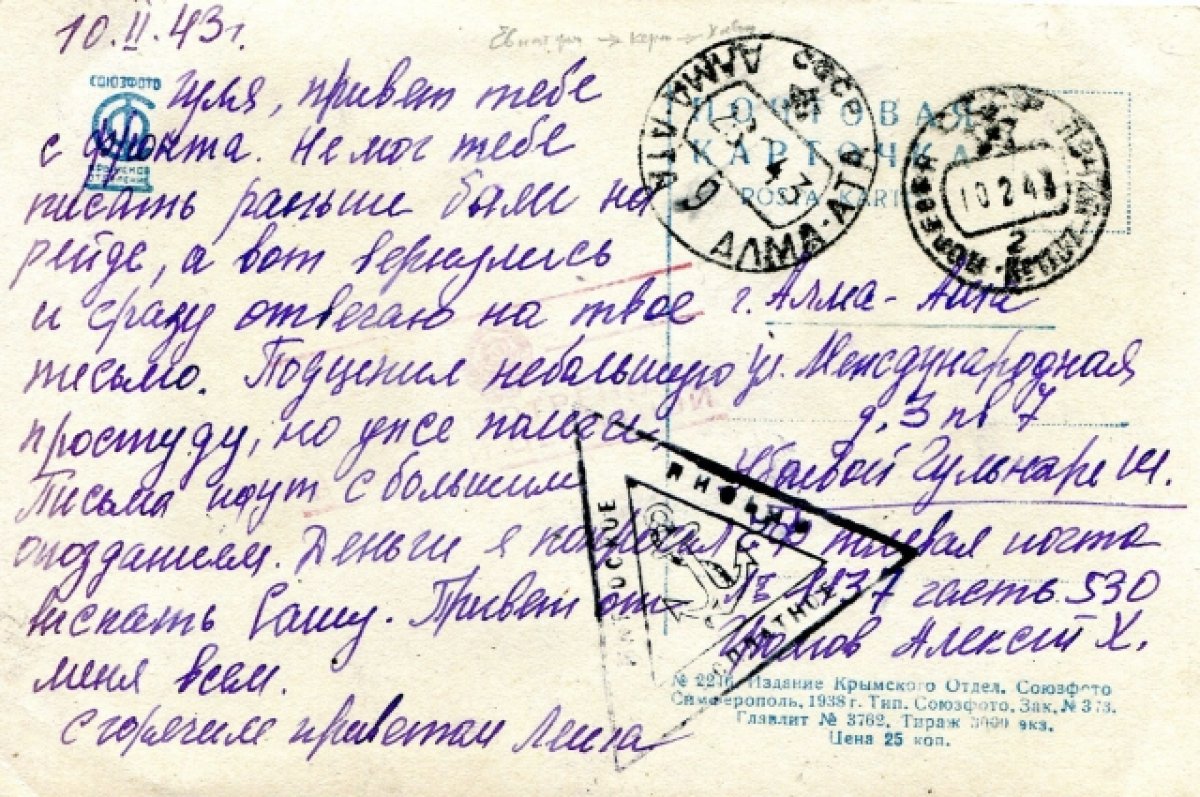 10.II.43г.
СОЮЗФОТО
Гуля, привет тебе
с фронта. Не мог тебе
писать раньше были на
рейде, а вот вернулись
и сразу отвечаю на твое
письмо. Подцепил небольшую
простуду, но уже полегче.
Письма идут с большим
опозданием. Деньги я
Сашу. Привет от
меня всем.
с горячим приветом Леша
ПОЧТОВАЯ
КАРТОЧКА
АЛМА АТА
СССР
АЛМА-АТА
10 2 43
2
г. Алма-Ата
ул. Международная
д. 3 кв 7
Гульнаре Ш.
полевая почта
часть 530
Алексей Х.
№ 2216 Издание Крымского Отдел. Союзфото
Симферополь, 1938 г. Тип. Союзфото, Зак. № 373.
Главлит № 3762. Тираж 3000 экз.
Цена 25 коп.